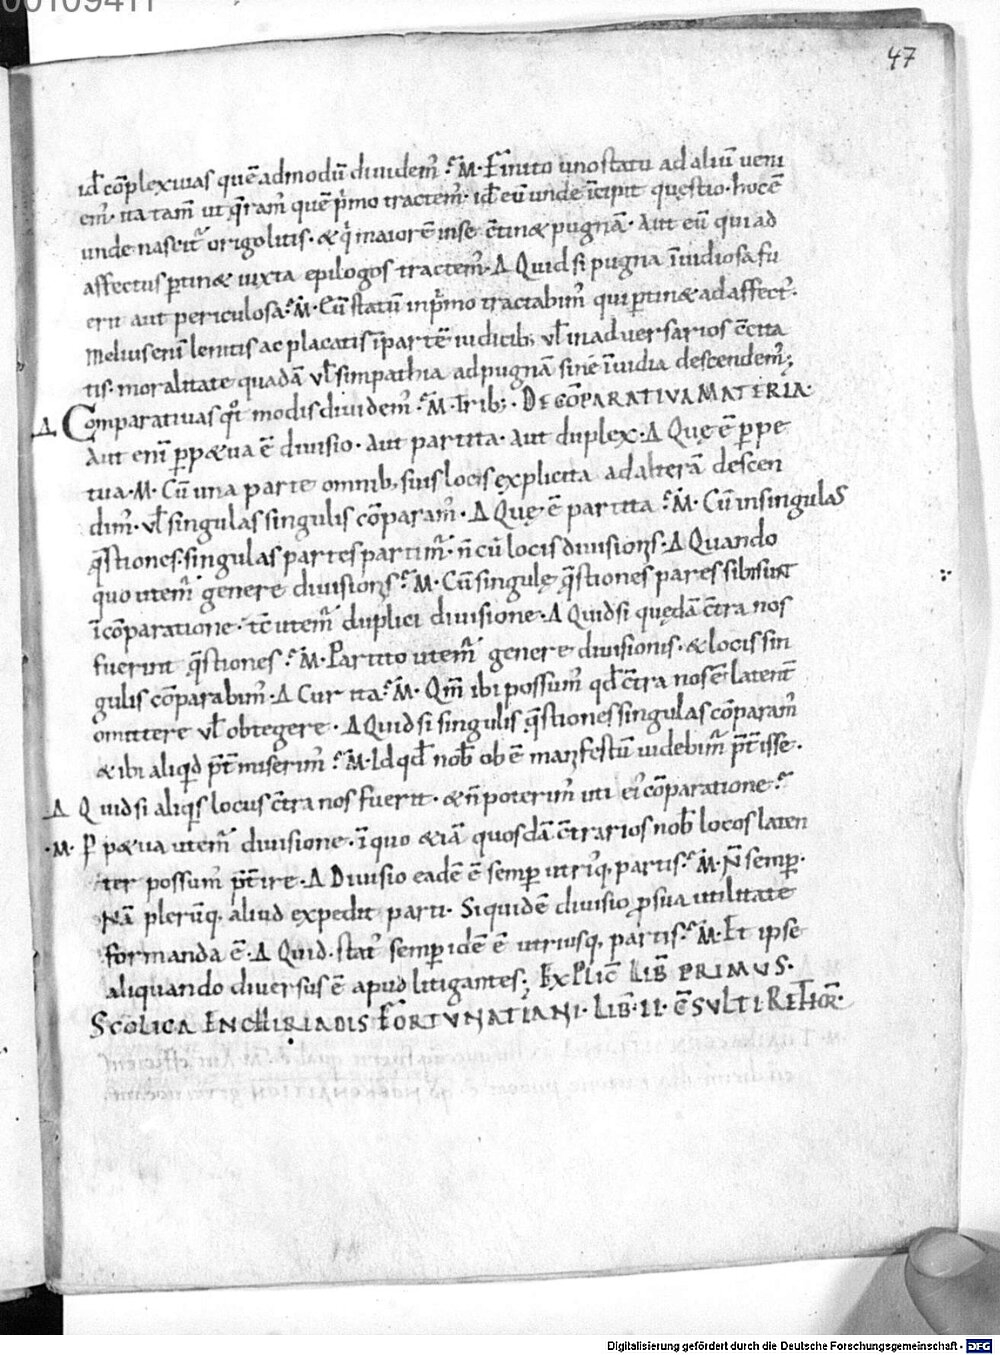 00109411
47
id cōplexiuas quēadmodū diuidem᷑. M. Finito uno statu ad aliū ueni
em᷑. ita tam̄ ut q̄ram᷑ quē p̄mo tractem᷑. id ē eū unde īcipit quęstio. hoc ē
unde nascit᷑ origo litis. & q̇ maiorē in se c̄tin& pugnā. Aut eū qui ad
affectus ꝑtin& iuxta epilogos tractem᷑. Δ Quid si pugna īuidiosa fu
erit aut periculosa. M. Cū statū in p̄mo tractabim᷑ qui ꝑtin& ad affect᷑.
Melius enī lenitis ac placatis ī partē iudicib; ul̄ in aduersarios c̄cita
tis. moralitate quadā ul̄ simpathia ad pugnā sine īuidia descendem᷑;
Δ Comparatiuas qōt modis diuidem᷑. M. Trib;. DE CŌPARATIVA MATERIA.
Aut enī ꝑp&ua ē diuisio. aut partita. aut duplex. Δ Quę ē ꝑpe
tua. M. Cū una parte omnib; suis locis explicita ad alterā descen
dim᷑. ul̄ singulas singulis cōparam᷑. Δ Quę ē partita. M. Cū in singulas
q̄stiones. singulas partes partim᷑. n̄ cū locis diuisionis. Δ Quando
quo utem᷑ genere diuisionis. M. Cū singulę q̄stiones pares sibi sunt
ī cōparatione. tc̄ utem᷑ duplici diuisione. Δ Quid si quędā c̄tra nos
fuerint q̄stiones. M. Partito utem᷑ genere diuisionis. & locis sin
gulis cōparabim᷑. Δ Cur ita. M. Qm̄ ibi possum᷑ qd̄ c̄tra nos ē latent᷑
omittere ul̄ obtegere. Δ Quid si singulis q̄stiones singulas cōparam᷑
& ibi aliqid p̄t᷑miserim᷑. M. Id qd̄ nob̄ ob ē manifestū uidebim᷑ p̄t᷑isse.
Δ Quid si aliqis locus c̄tra nos fuerit. & n̄ poterim᷑ uti ei᷑ cōparatione.
M. Ꝑp&ua utem᷑ diuisione. ī quo & iā quosdā c̄trarios nob̄ locos laten
ter possum᷑ p̄t᷑ire. Δ Diuisio eadē ē semꝑ utri᷑q; partis. M. N̄ semꝑ.
Nā plerūq; aliud expedit parti. Siquidē diuisio ꝓ sua utilitate
formanda ē. Δ Quid. stat᷑ semꝑ idē ē utriusq; partis. M. Et ipse
aliquando diuersus ē apud litigantes; EXPLIĒ LIB̄ PRIMVS.
SCOLICA ENCHIRIADIS FORTVNATIANI. LIB̄. II. C̄SVLTI RETHOR̄.
Digitalisierung gefördert durch die Deutsche Forschungsgemeinschaft - DFG